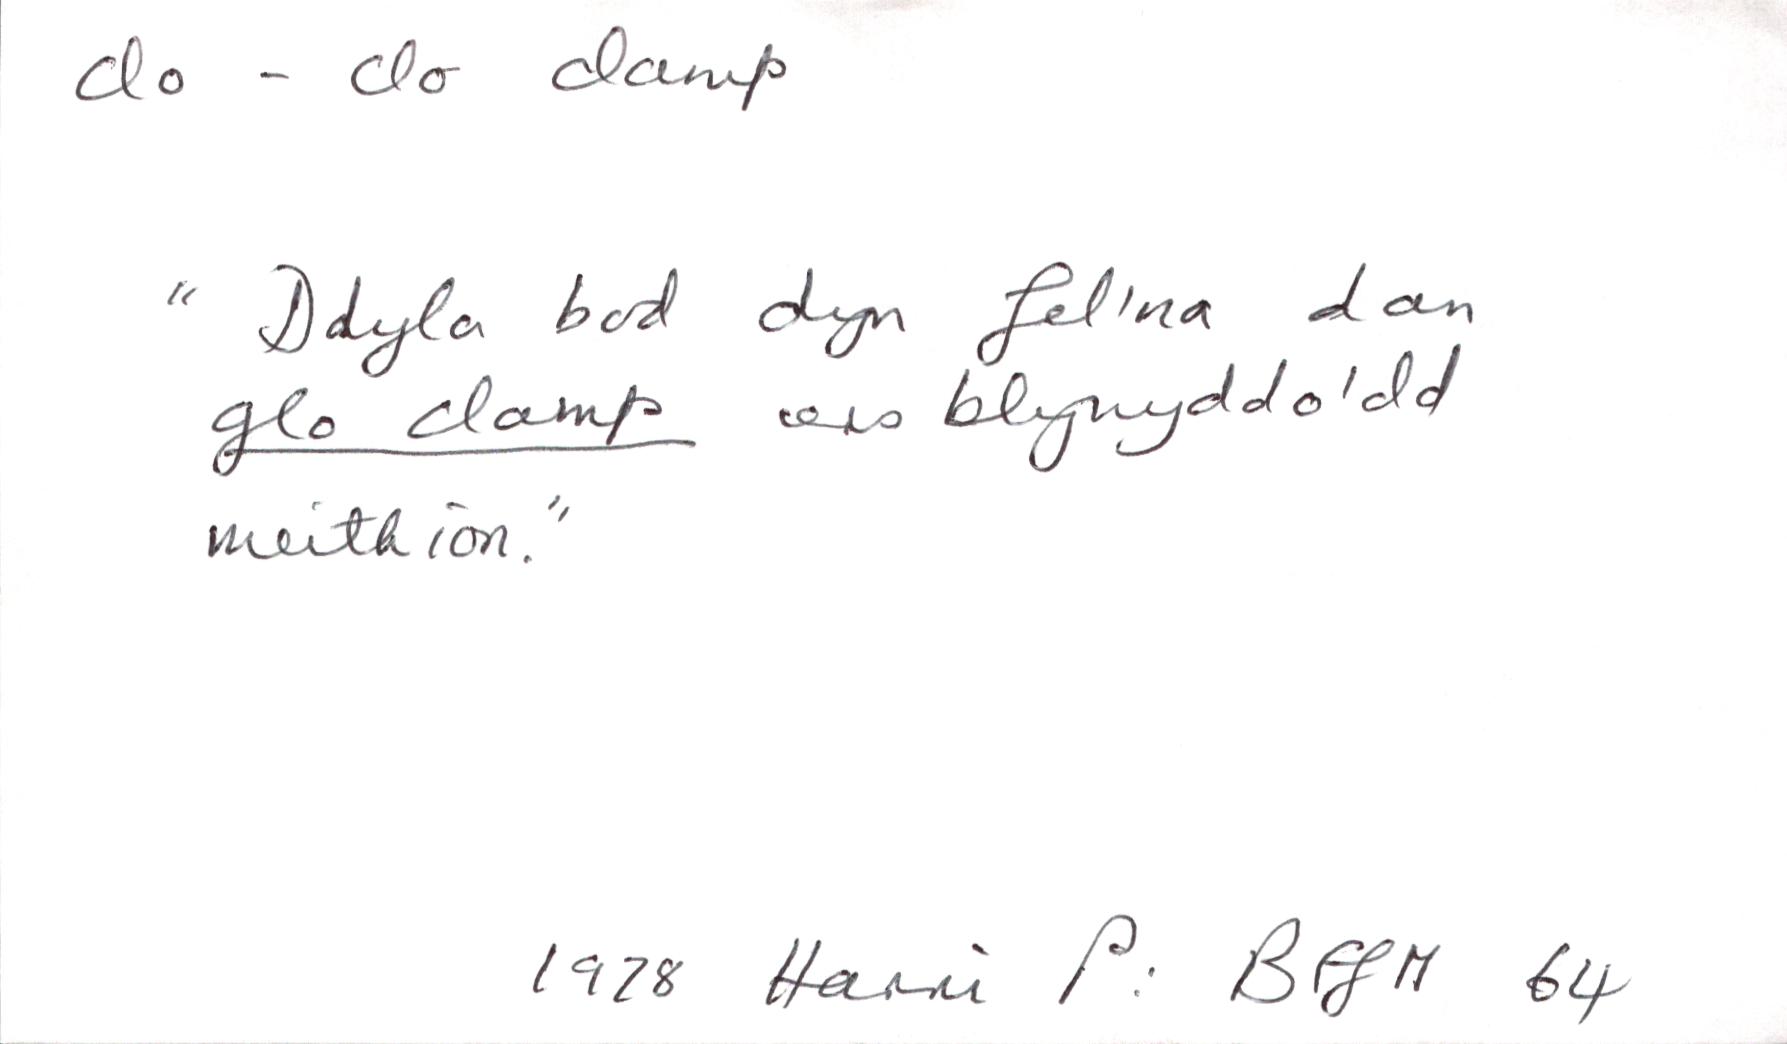 clo - clo clamp
"Ddyla bod dyn fel'na dan
glo clamp ers blynyddo'dd
meithion."
1978 Harri P: BFfM 64